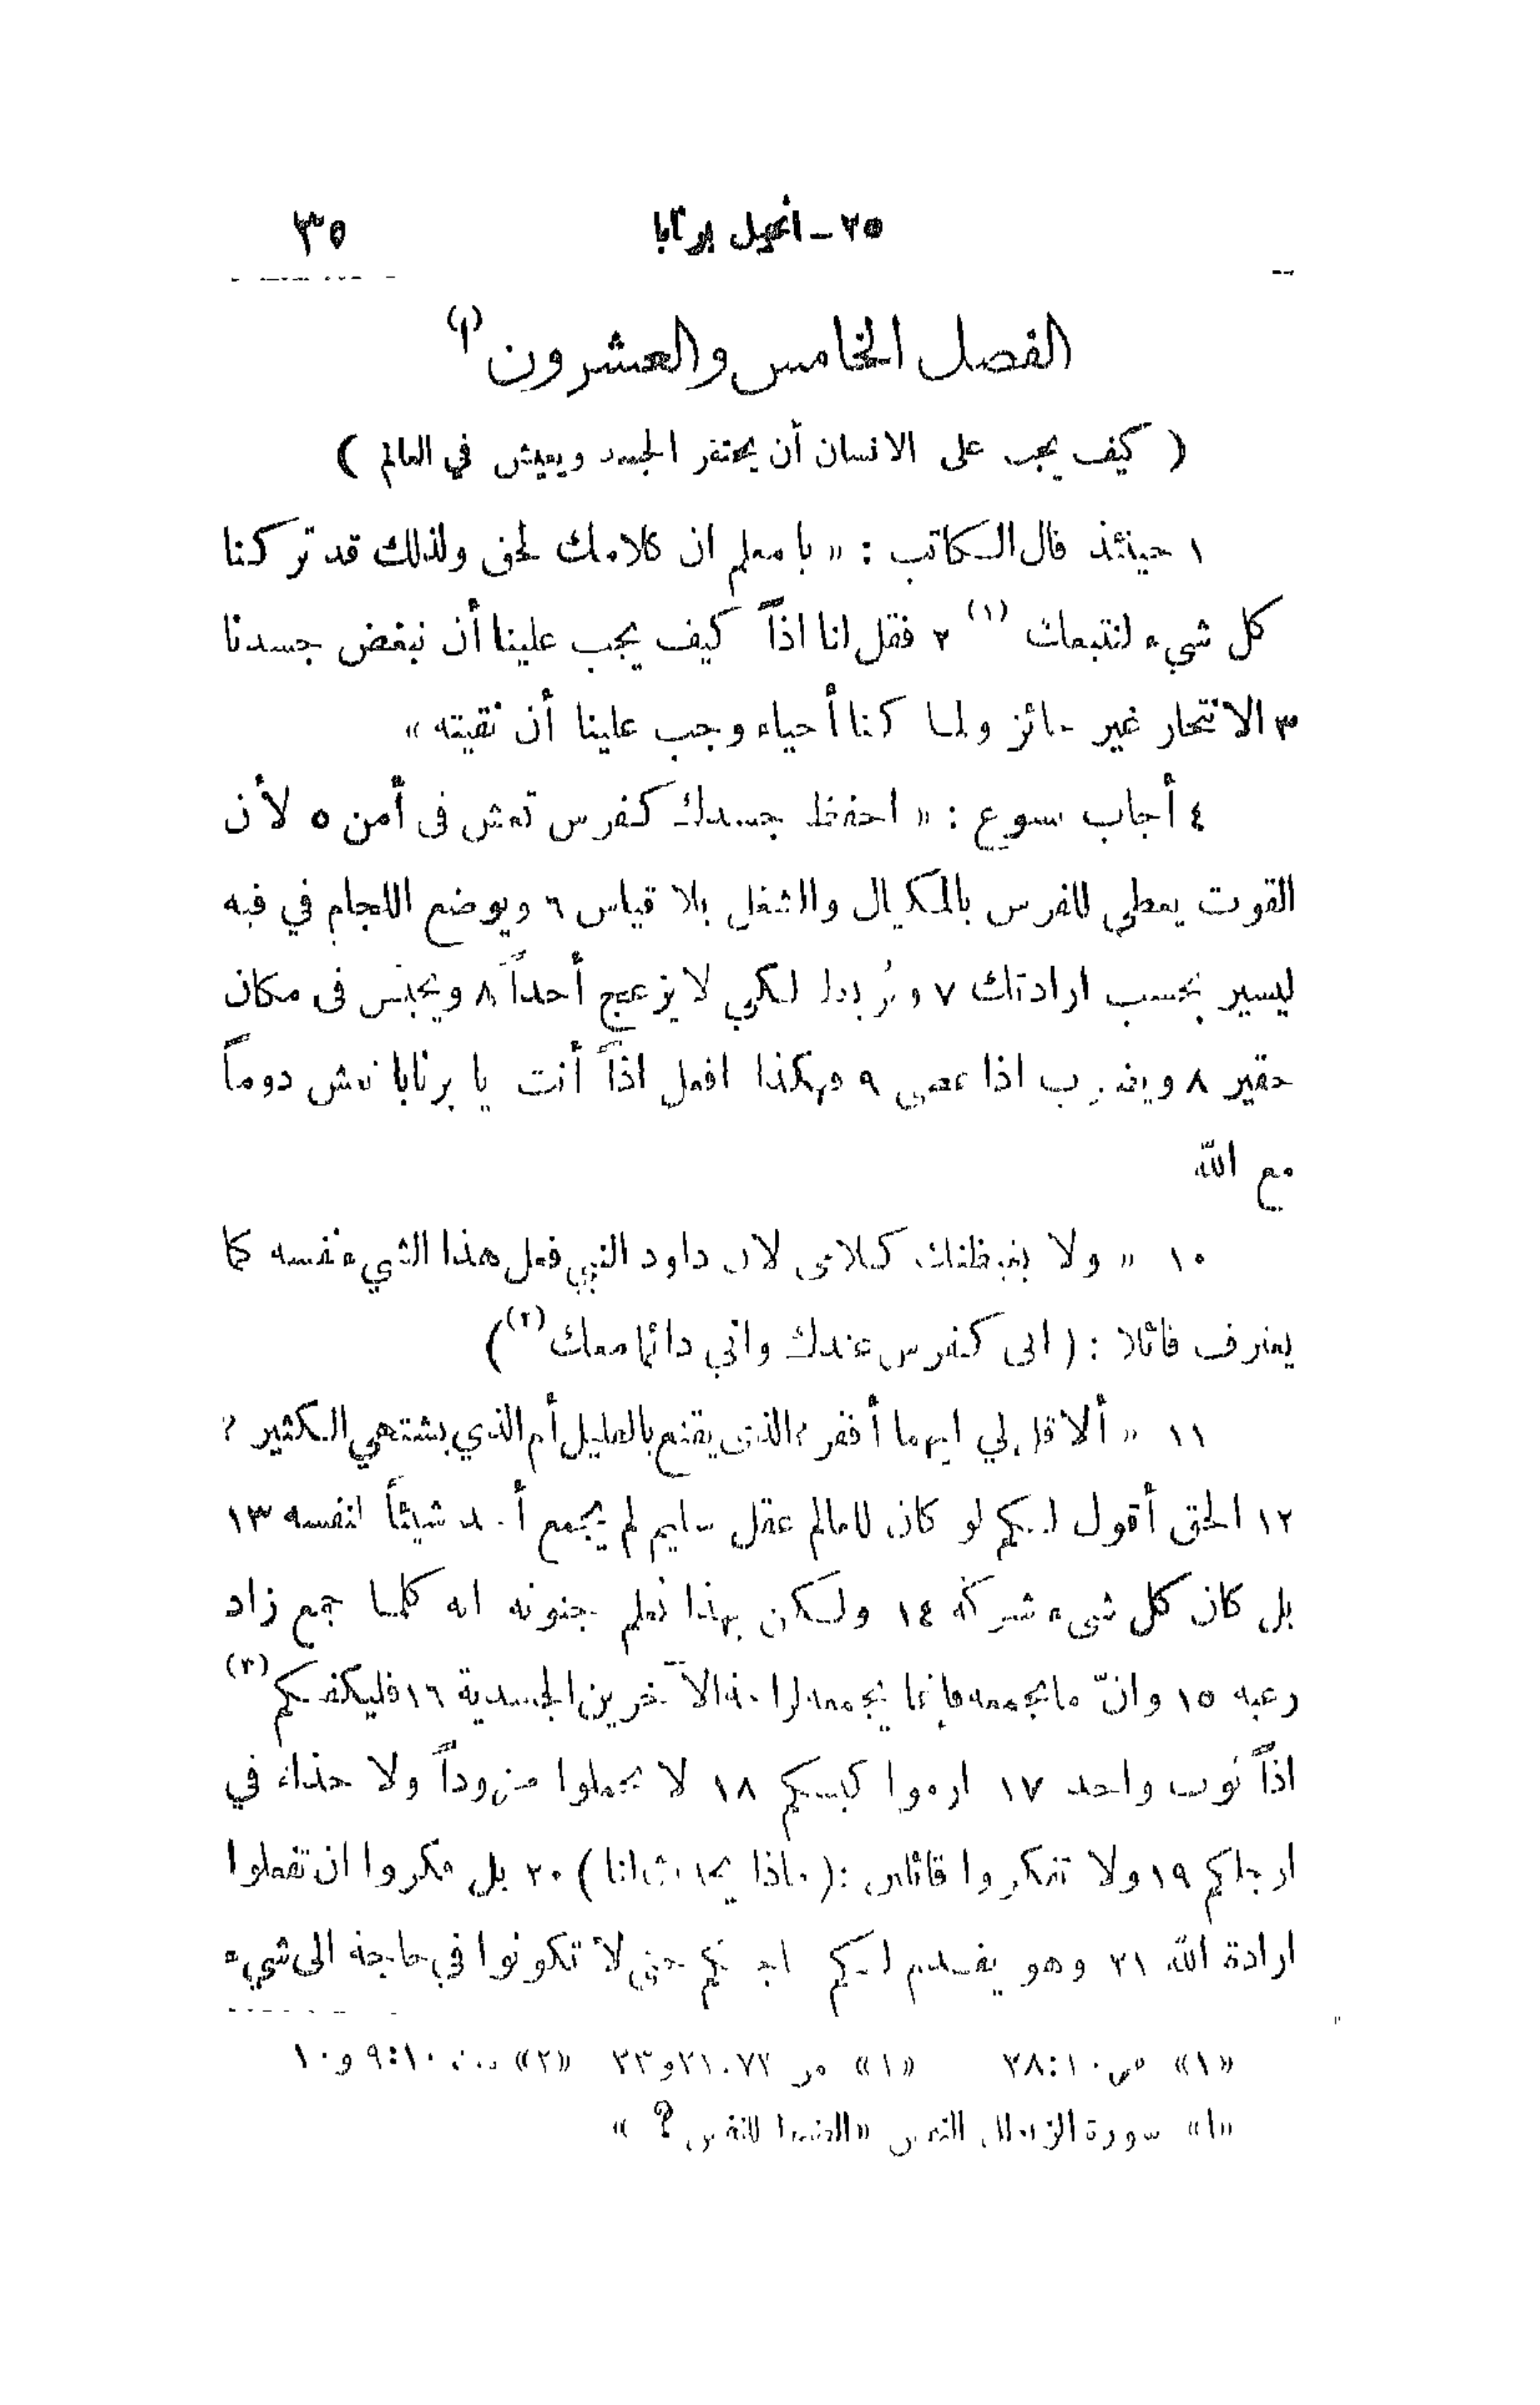 ٢٥ - انجيل برنابا ٣٥
الفصل الخامس والعشرون (ا)
( كيف يجب على الانسان أن يحتقر الجسد ويعيش في العالم )
١ حينئذ قال الكاتب : « يا معلم ان كلامك لحق ولذلك قد تركنا
كل شيء لنتبعك (١) ٢ فقل لنا اذاً كيف يجب علينا أن نبغض جسدنا
٣ الانتحار غير جائز ولما كنا أحياء وجب علينا أن نقيته »
٤ أجاب يسوع : « احفظ جسدك كفرس تعش في أمن ٥ لأن
القوت يعطى للفرس بالمكيال والشغل بلا قياس ٦ ويوضع اللجام في فيه
ليسير بحسب ارادتك ٧ ويُربط لكي لا يزعج أحداً ٨ ويحبس في مكان
حقير ٨ ويضرب اذا عصى ٩ فهكذا افعل اذاً أنت يا برنابا تعش دوماً
مع الله
١٠ « ولا يغيظنك كلامي لان داود النبي فعل هذا الشيء نفسه كما
يعترف قائلا : ( اني كفرس عندك واني دائما معك (٢) )
١١ « ألا قل لي ايهما أفقر ؟ الذي يقنع بالقليل أم الذي يشتهي الكثير ؟
١٢ الحق أقول لكم لو كان للعالم عقل سليم لم يجمع أحد شيئاً لنفسه ١٣
بل كان كل شيء شركة ١٤ ولكن بهذا نعلم جنونه انه كلما جمع زاد
رغبه ١٥ وانّ ما يجمعه فانما يجمعه لراحة الآخرين الجسدية ١٦ فليكفكم (٣)
اذاً ثوب واحد ١٧ ارموا كيسكم ١٨ لا تحملوا مزوداً ولا حذاء في
ارجلكم ١٩ ولا تفكروا قائلين : ( ماذا يحدث لنا ) ٢٠ بل فكروا ان تفعلوا
ارادة الله ٢١ وهو يقدم لكم حاجتكم حتى لا تكونوا في حاجة الى شيء
«١» ٢٨:١٠ «١» مز ٢١،٧٣ و٢٣ «٢» ٩:١٠ و١٠
«ا» سورة النفس